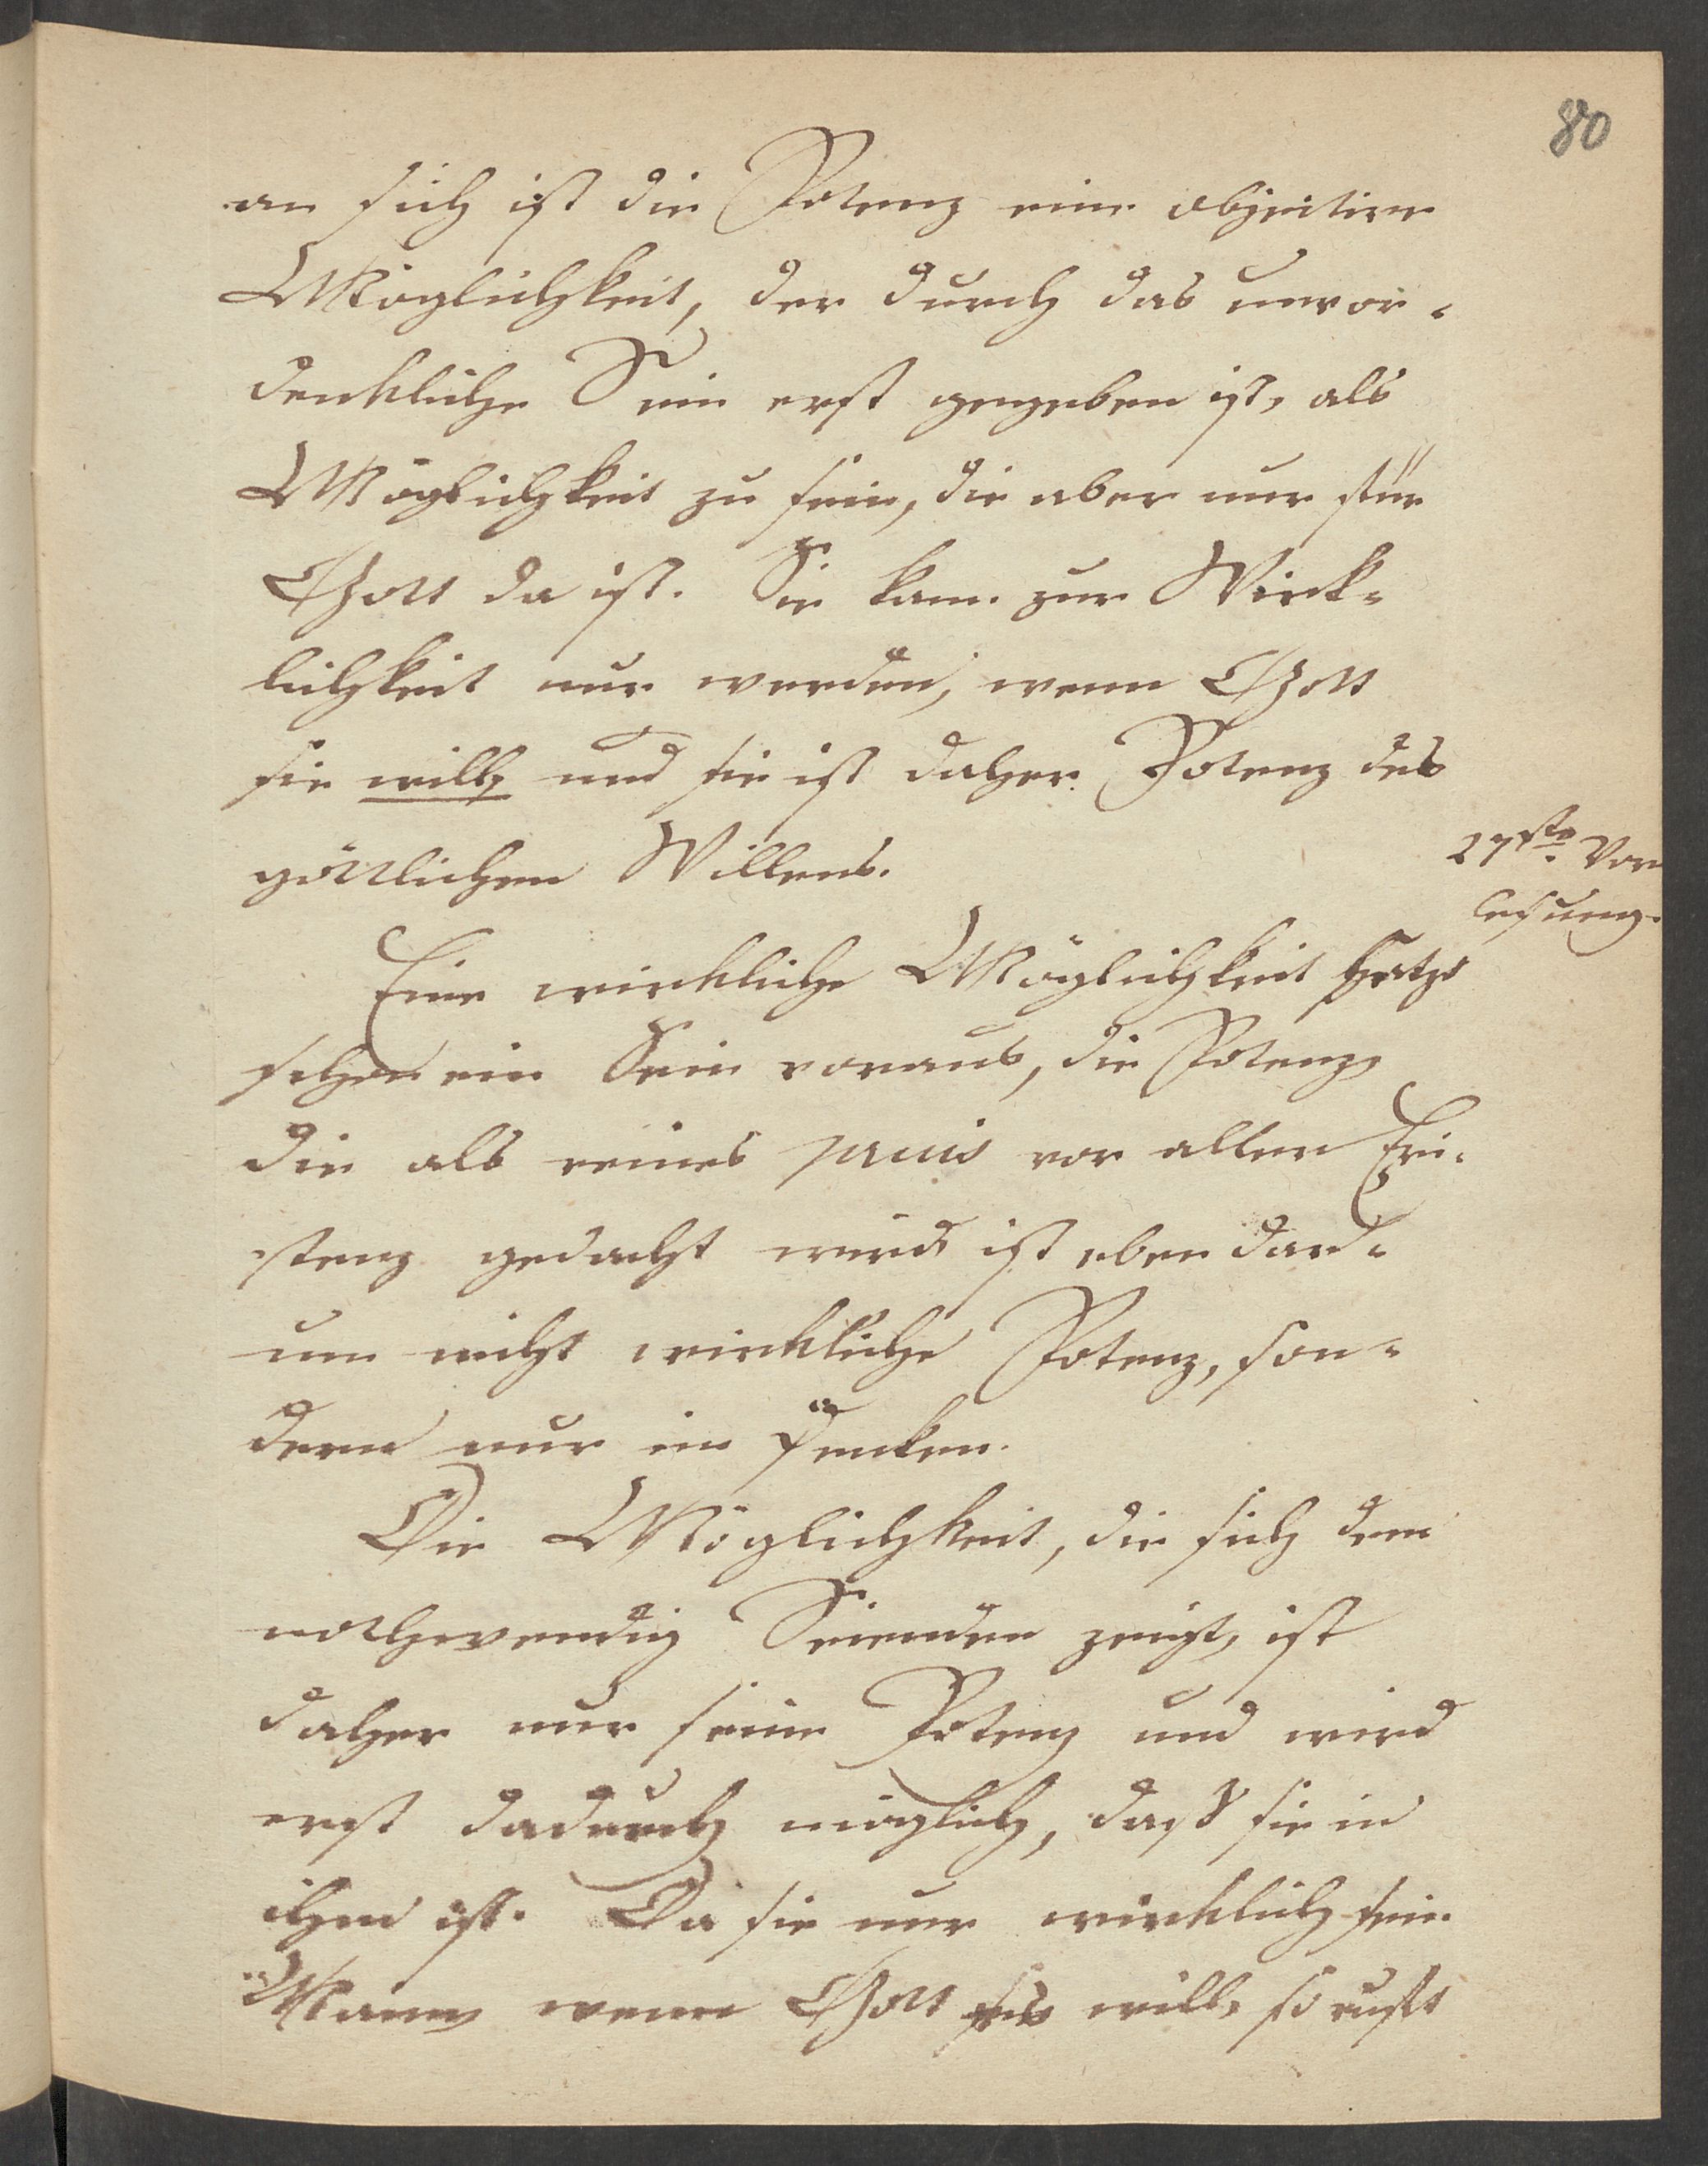 80
an sich ist die Potenz eine objective
Möglichkeit, der durch das unvor-
denkliche Sein erst gegeben ist, als
Möglichkeit zu sein, die aber nur für
Gott da ist. Sie kann zur Wirk-
lichkeit nur werden, wenn Gott
sie will und sie ist daher Potenz des
göttlichen Willens.
27ste Vor
lesung.
Eine wirkliche Möglichkeit setzt
schon ein Sein voraus, die Potenz
die als reines prius vor aller Exi-
stenz gedacht wird ist eben dar-
um nicht wirkliche Potenz, son-
dern nur im Denken.
Die Möglichkeit, die sich dem
nothwendig Seienden zeigt, ist
daher nur seine Potenz und wird
erst dadurch möglich, daß sie in
ihm ist. Da sie nur wirklich sein
kann wenn Gott es will, so ruht